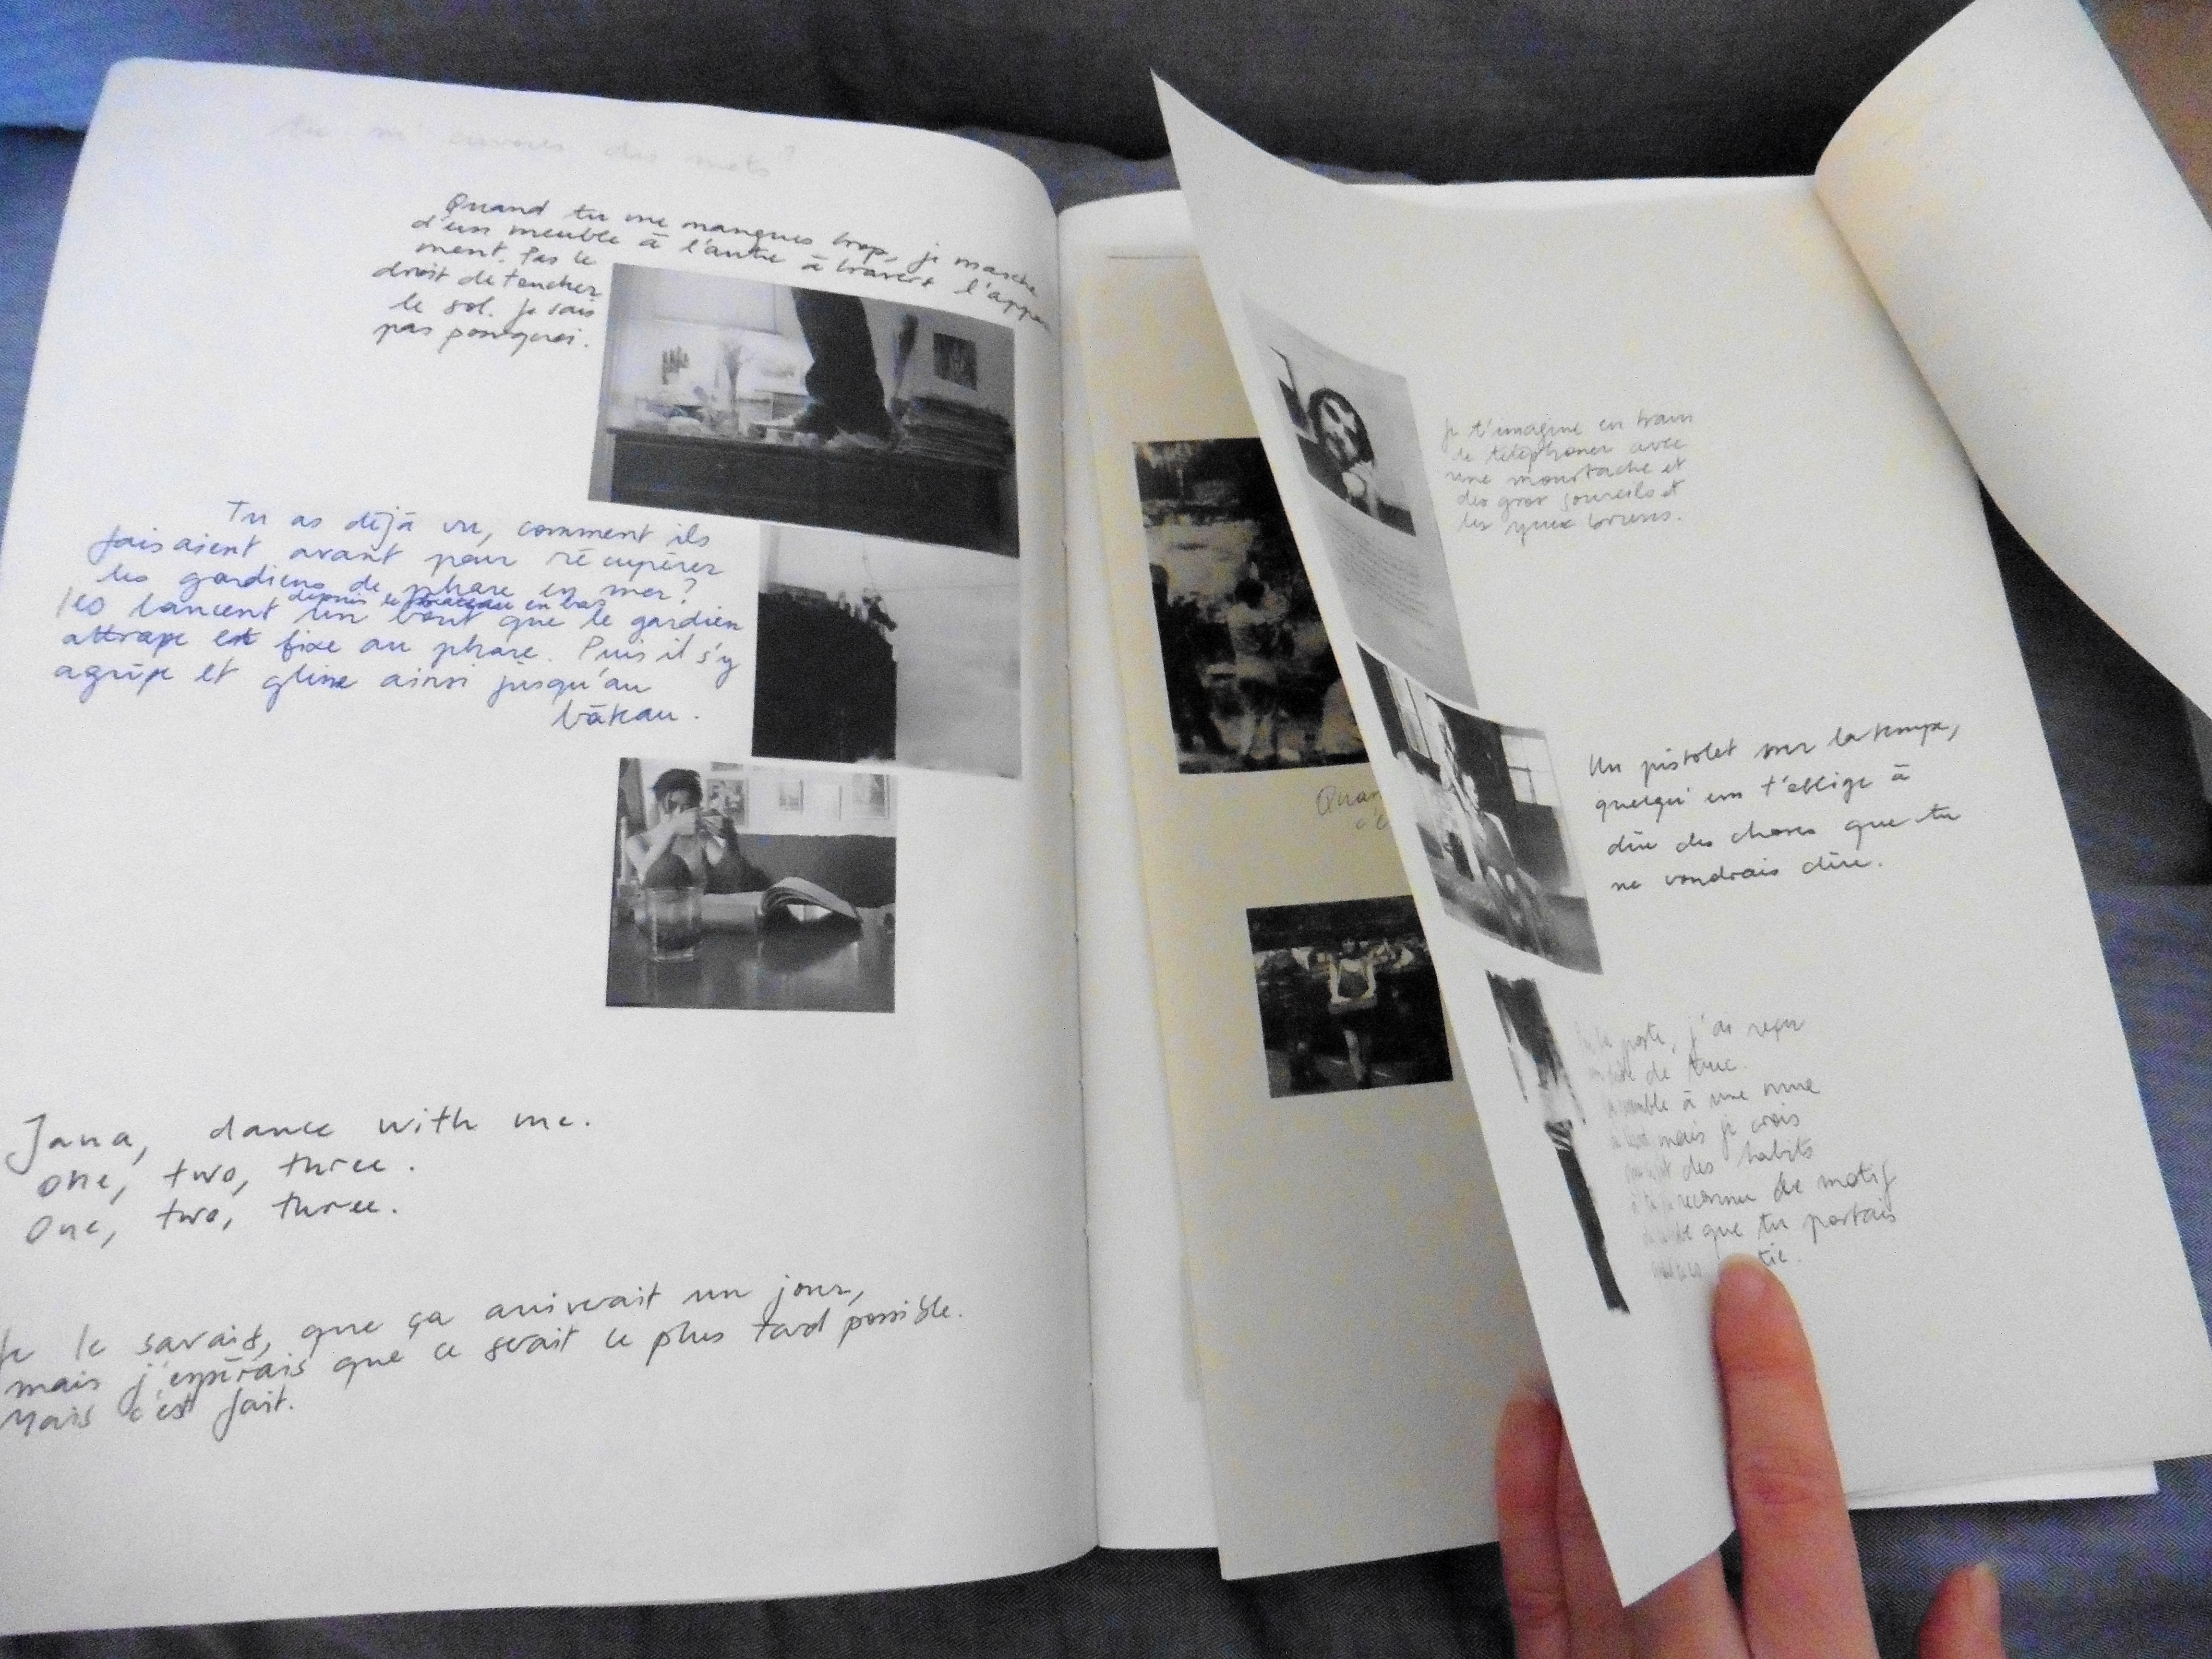 des mots?
Quand tu me manques trop, je marche
d'un meuble à l'autre à travers l'appar
ment. Pas le
droit de toucher
le sol. Je sais
pas pourquoi.
Tu as déjà vu, comment ils
faisaient avant pour récupérer
les gardiens de phare en mer?
depuis le bateau en bas
Ils lancent un bout que le gardien
attrape et fixe au phare. Puis il s'y
agripe et glisse ainsi jusqu'au
bâteau.
Jana, dance with me.
One, two, three.
One, two, three.
Je le savais, que ça arriverait un jour,
mais j'espérais que ce serait le plus tard possible.
Mais c'est fait.
Quan
Je t'imagine en train
de téléphoner avec
une moustache et
des gros sourcils et
les yeux bruns.
Un pistolet sur la tempe,
quelqu'un t'oblige à
dire des choses que tu
ne voudrais dire.
poste, j'ai reçu
de truc
à une
mais je crois
des habits
reconnu le motif
que tu portais